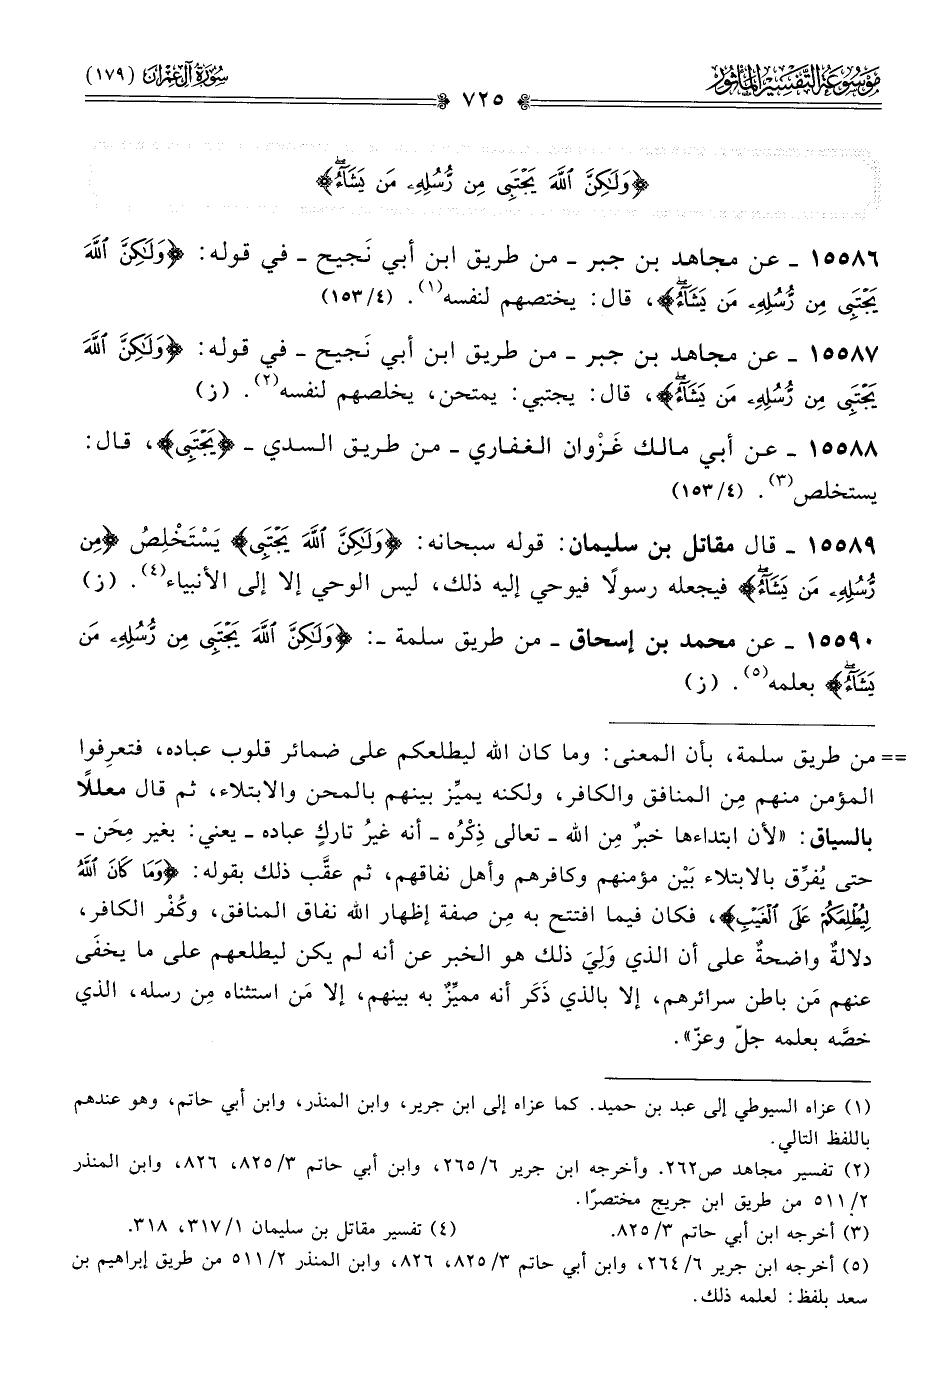 مَوْسُوعَةُ التَّفْسِيرِ المَأْثُورِ
سُورَةُ آلِ عِمْرَانَ (١٧٩)
٧٢٥
﴿وَلَٰكِنَّ ٱللَّهَ يَجْتَبِى مِن رُّسُلِهِۦ مَن يَشَآءُۖ﴾
١٥٥٨٦ ـ عن مجاهد بن جبر ـ من طريق ابن أبي نَجيح ـ في قوله: ﴿وَلَٰكِنَّ ٱللَّهَ
يَجْتَبِى مِن رُّسُلِهِۦ مَن يَشَآءُۖ﴾، قال: يختصهم لنفسه(١). (١٥٣/٤)
١٥٥٨٧ ـ عن مجاهد بن جبر ـ من طريق ابن أبي نَجيح ـ في قوله: ﴿وَلَٰكِنَّ ٱللَّهَ
يَجْتَبِى مِن رُّسُلِهِۦ مَن يَشَآءُۖ﴾، قال: يجتبي: يمتحن، يخلصهم لنفسه(٢). (ز)
١٥٥٨٨ ـ عن أبي مالك غَزْوان الغفاري ـ من طريق السدي ـ ﴿يَجْتَبِى﴾، قال:
يستخلص(٣). (١٥٣/٤)
١٥٥٨٩ ـ قال مقاتل بن سليمان: قوله سبحانه: ﴿وَلَٰكِنَّ ٱللَّهَ يَجْتَبِى﴾ يَسْتَخْلِصُ ﴿مِن
رُّسُلِهِۦ مَن يَشَآءُۖ﴾ فيجعله رسولًا فيوحي إليه ذلك، ليس الوحي إلا إلى الأنبياء(٤). (ز)
١٥٥٩٠ ـ عن محمد بن إسحاق ـ من طريق سلمة ـ: ﴿وَلَٰكِنَّ ٱللَّهَ يَجْتَبِى مِن رُّسُلِهِۦ مَن
يَشَآءُۖ﴾ بعلمه(٥). (ز)
== من طريق سلمة، بأن المعنى: وما كان الله ليطلعكم على ضمائر قلوب عباده، فتعرِفوا
المؤمن منهم مِن المنافق والكافر، ولكنه يميِّز بينهم بالمحن والابتلاء، ثم قال معللًا
بالسياق: «لأن ابتداءها خبرٌ مِن الله ـ تعالى ذِكْرُه ـ أنه غيرُ تاركٍ عباده ـ يعني: بغير مِحَن ـ
حتى يُفرِّق بالابتلاء بَيْن مؤمنهم وكافرهم وأهل نفاقهم، ثم عقَّب ذلك بقوله: ﴿وَمَا كَانَ ٱللَّهُ
لِيُطْلِعَكُمْ عَلَى ٱلْغَيْبِ﴾، فكان فيما افتتح به مِن صفة إظهار الله نفاق المنافق، وكُفْر الكافر،
دلالةٌ واضحةٌ على أن الذي وَلِيَ ذلك هو الخبر عن أنه لم يكن ليطلعهم على ما يخفَى
عنهم مَن باطن سرائرهم، إلا بالذي ذَكَر أنه مميِّزٌ به بينهم، إلا مَن استثناه مِن رسله، الذي
خصَّه بعلمه جلّ وعزّ».
(١) عزاه السيوطي إلى عبد بن حميد. كما عزاه إلى ابن جرير، وابن المنذر، وابن أبي حاتم، وهو عندهم
باللفظ التالي.
(٢) تفسير مجاهد ص٢٦٢. وأخرجه ابن جرير ٢٦٥/٦، وابن أبي حاتم ٨٢٥/٣، ٨٢٦، وابن المنذر
٥١١/٢ من طريق ابن جريج مختصرًا.
(٣) أخرجه ابن أبي حاتم ٨٢٥/٣. (٤) تفسير مقاتل بن سليمان ٣١٧/١، ٣١٨.
(٥) أخرجه ابن جرير ٢٦٤/٦، وابن أبي حاتم ٨٢٥/٣، ٨٢٦، وابن المنذر ٥١١/٢ من طريق إبراهيم بن
سعد بلفظ: لعلمه ذلك.